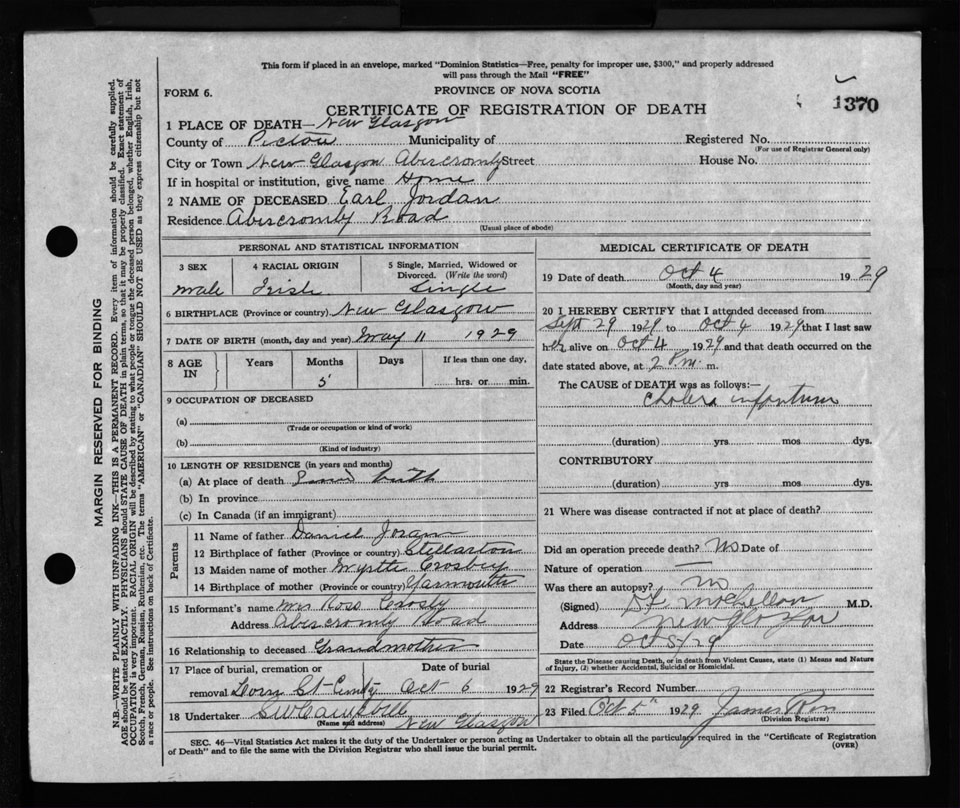 This form if placed in an envelope, marked "Dominion Statistics—Free, penalty for improper use, $300," and properly addressed
will pass through the Mail "FREE"
FORM 6.
PROVINCE OF NOVA SCOTIA
CERTIFICATE OF REGISTRATION OF DEATH
1370
1 PLACE OF DEATH—New Glasgow
County of Pictou Municipality of Registered No.
(For use of Registrar General only)
City or Town New Glasgow Abercromby Street House No.
If in hospital or institution, give name Home
2 NAME OF DECEASED Earl Jordan
Residence Abercromby Road
(Usual place of abode)
PERSONAL AND STATISTICAL INFORMATION
3 SEX 4 RACIAL ORIGIN 5 Single, Married, Widowed or
Divorced. (Write the word)
Male Irish Single
6 BIRTHPLACE (Province or country) New Glasgow
7 DATE OF BIRTH (month, day and year) May 11 1929
8 AGE IN Years Months Days If less than one day,
5 hrs. or min.
9 OCCUPATION OF DECEASED
(a)
(Trade or occupation or kind of work)
(b)
(Kind of industry)
10 LENGTH OF RESIDENCE (in years and months)
(a) At place of death Since birth
(b) In province
(c) In Canada (if an immigrant)
Parents
11 Name of father Daniel Joran
12 Birthplace of father (Province or country) Stellarton
13 Maiden name of mother Myrtle Crosbey
14 Birthplace of mother (Province or country) Yarmouth
15 Informant's name Mrs Ross Crosby
Address Abercromby Road
16 Relationship to deceased Grandmother
17 Place of burial, cremation or Date of burial
removal Lorn St Oct 6 1929
18 Undertaker C W Campbell New Glasgow
(Name and address)
MEDICAL CERTIFICATE OF DEATH
19 Date of death Oct 4 19 29
(Month, day and year)
20 I HEREBY CERTIFY that I attended deceased from
Sept 29 1929 to Oct 4 1929 that I last saw
h alive on Oct 4 1929 and that death occurred on the
date stated above, at 2 P.m. m.
The CAUSE of DEATH was as follows:—
Cholera infantum
(duration) yrs mos dys.
CONTRIBUTORY
(duration) yrs mos dys.
21 Where was disease contracted if not at place of death?
Did an operation precede death? No Date of
Nature of operation —
Was there an autopsy? no
(Signed) M.D.
Address New Glasgow
Date Oct 5/29
State the Disease causing Death, or in death from Violent Causes, state (1) Means and Nature
of Injury, (2) whether Accidental, Suicidal or Homicidal.
22 Registrar's Record Number
23 Filed Oct 5th 1929 James
(Division Registrar)
SEC. 46—Vital Statistics Act makes it the duty of the Undertaker or person acting as Undertaker to obtain all the particulars required in the "Certificate of Registration
of Death" and to file the same with the Division Registrar who shall issue the burial permit.
(OVER)
MARGIN RESERVED FOR BINDING
N.B.—WRITE PLAINLY WITH UNFADING INK—THIS IS A PERMANENT RECORD. Every item of information should be carefully supplied.
AGE should be stated EXACTLY. PHYSICIANS should STATE CAUSE OF DEATH in plain terms, so that it may be properly classified. Exact statement of
OCCUPATION is very important. RACIAL ORIGIN will be described by stating to what people or tongue the deceased person belonged, whether English, Irish,
Scotch, French, German, Russian, Ruthenian, etc. The terms "AMERICAN" or "CANADIAN" SHOULD NOT BE USED as they express citizenship but not
a race or people. See instructions on back of Certificate.